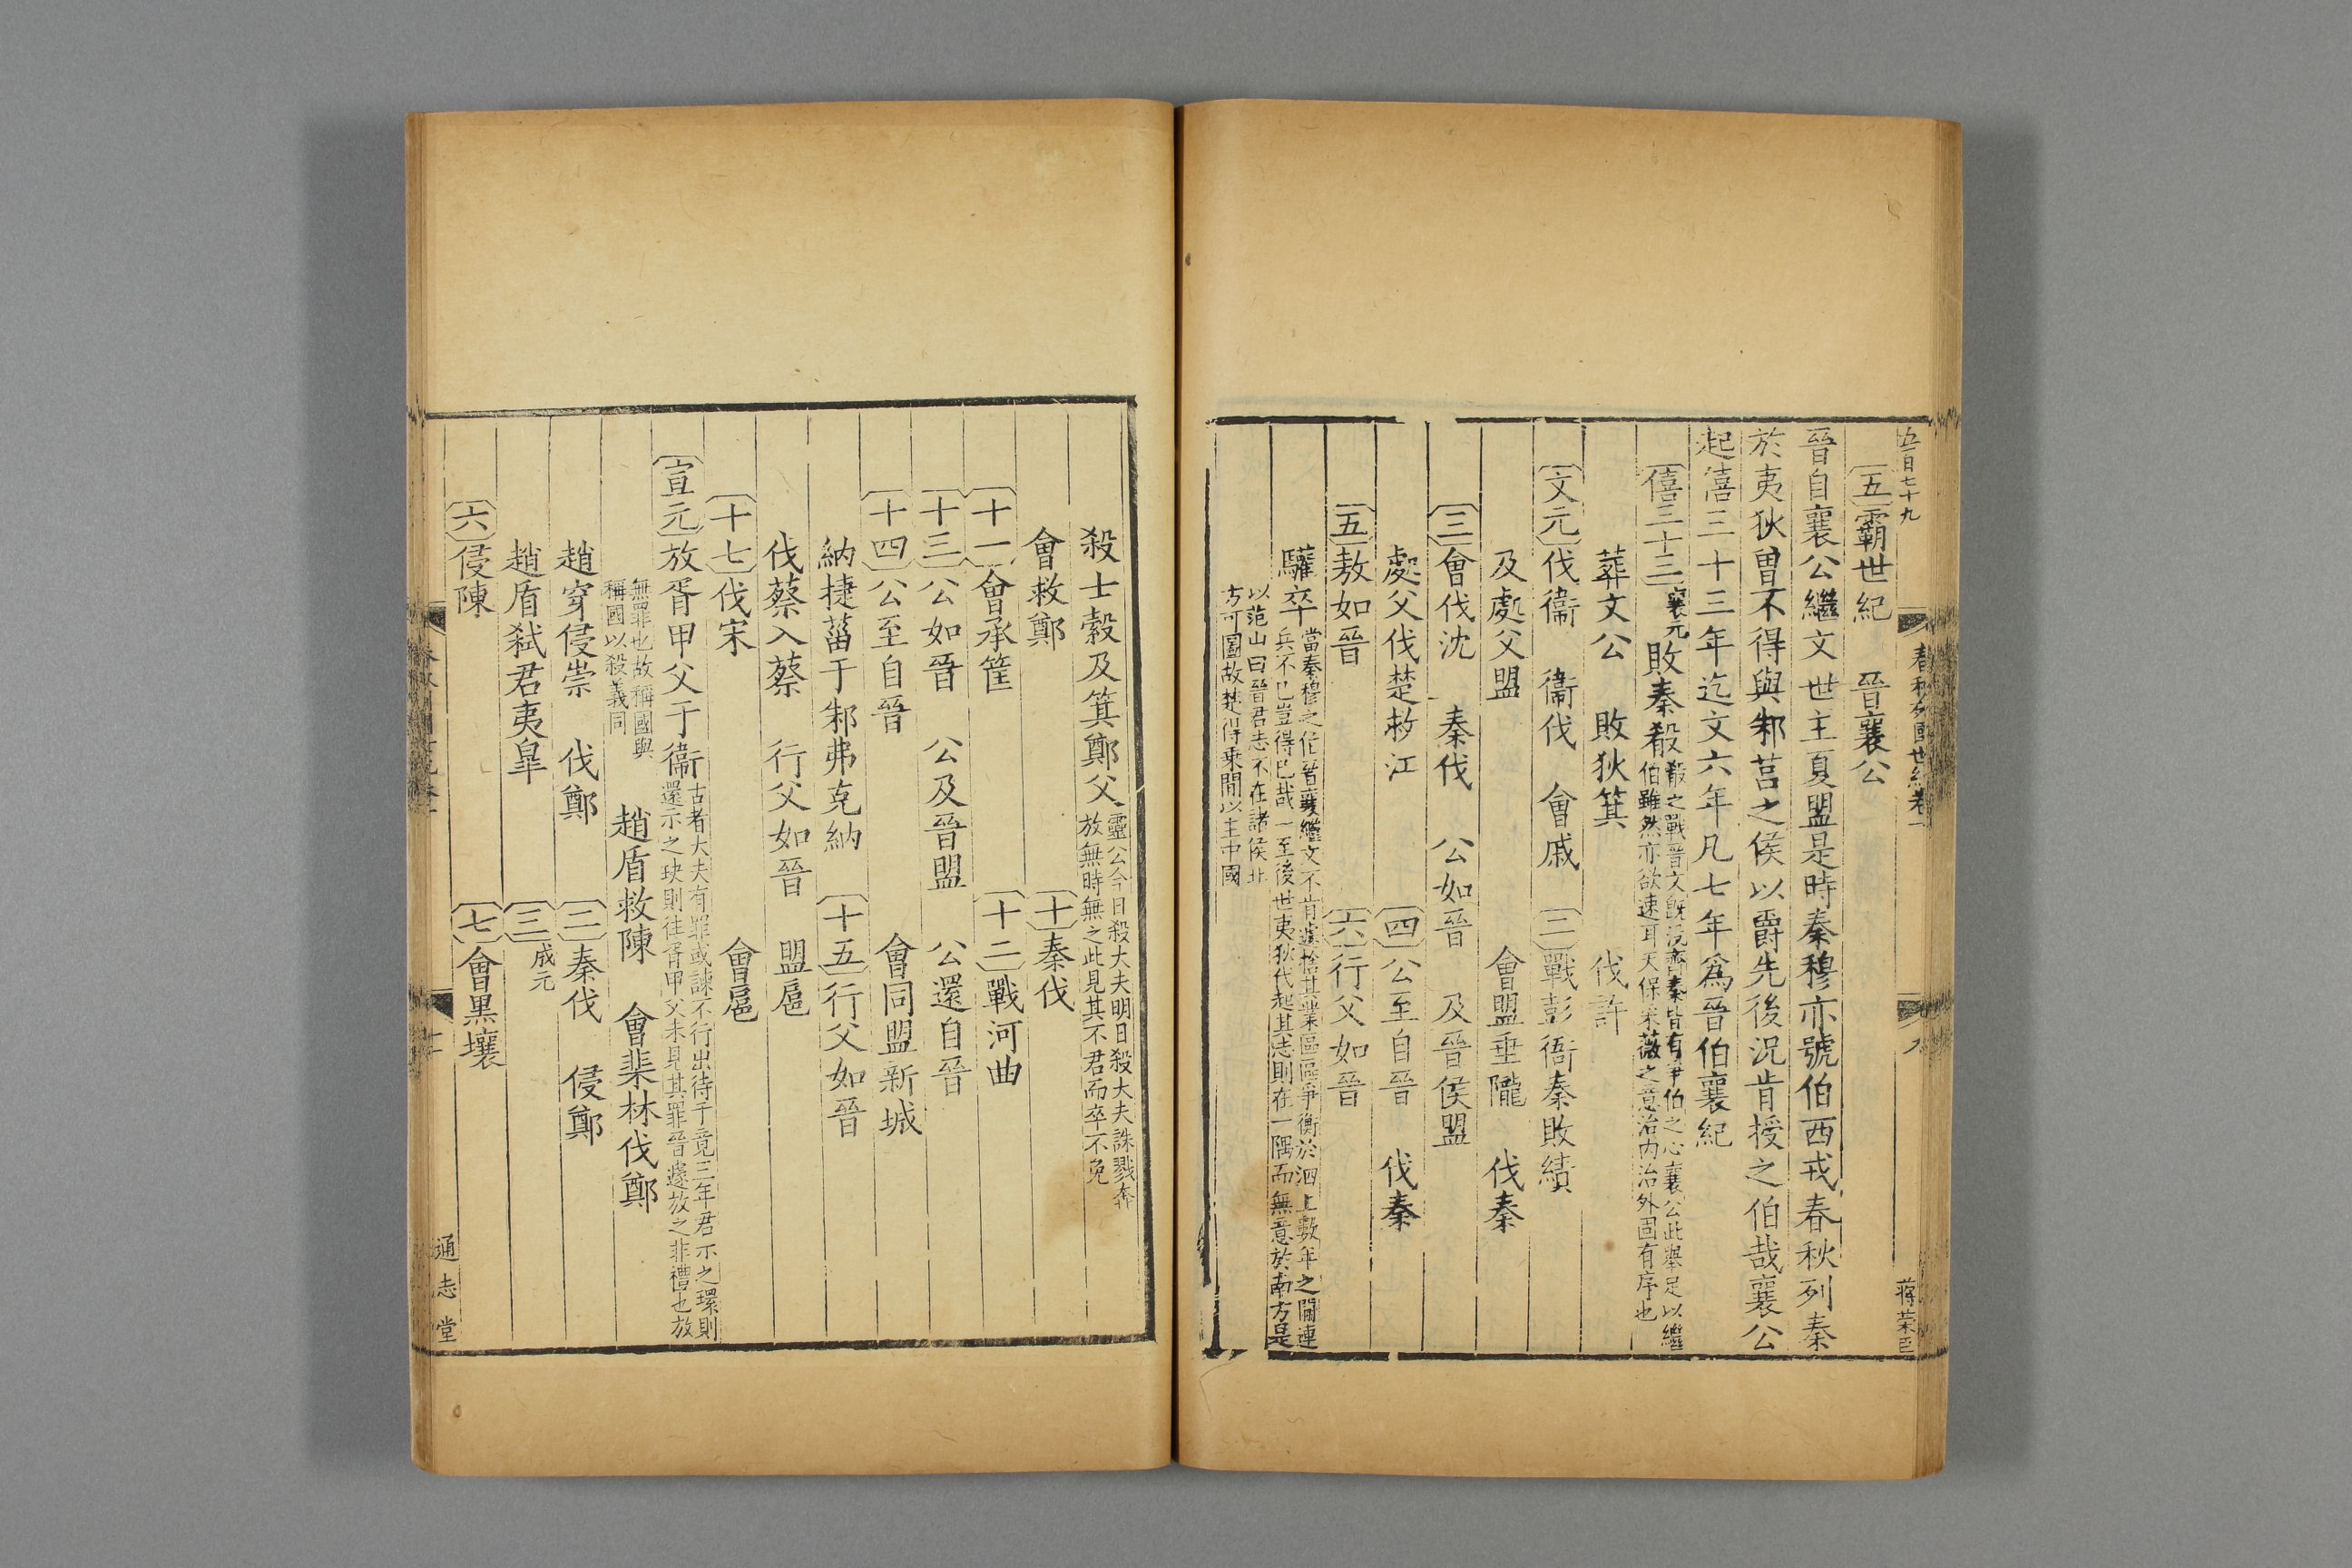 五百七十九 春秋列國世紀卷一 八 蔣榮臣
五霸世紀 晉襄公
晉自襄公繼文世主夏盟是時秦穆亦號伯西戎春秋列秦
於夷狄曾不得與邾莒之侯以爵先後況肯授之伯哉襄公
起僖三十三年迄文六年凡七年爲晉伯襄紀
僖三十三襄元敗秦殽殽之戰晉文旣沒齊秦皆有爭伯之心襄公此舉足以繼
伯雖然亦欲速耳天保采薇之意治内治外固有序也
葬文公 敗狄箕 伐許
文元伐衞 衞伐 會戚 二戰彭衙秦敗績
及處父盟 會盟垂隴 伐秦
三會伐沈 秦伐 公如晉 及晉侯盟
處父伐楚救江 四公至自晉 伐秦
五敖如晉 六行父如晉
驩卒當秦穆之伯晉襄繼文不肯遽捨其業區區爭衡於泗上數年之間連
兵不已豈得已哉一至後世夷狄代起其志則在一隅而無意於南方是
以范山曰晉君志不在諸侯北
方可圖故楚得乗間以主中國
殺士縠及箕鄭父靈公今日殺大夫明日殺大夫誅戮奔
放無時無之此見其不君而卒不免
會救鄭 十秦伐
十一會承筐 十二戰河曲
十三公如晉 公及晉盟 公還自晉
十四公至自晉 會同盟新城
納捷菑于邾弗克納 十五行父如晉
伐蔡入蔡 行父如晉 盟扈
十七伐宋 會扈
宣元放胥甲父于衞古者大夫有罪或諫不行出待于竟三年君示之環則
還示之玦則往胥甲父未見其罪晉遽放之非禮也放
無罪也故稱國與
稱國以殺義同 趙盾救陳 會棐林伐鄭
趙穿侵崇 伐鄭 二秦伐 侵鄭
趙盾弑君夷臯 三成元
六侵陳 七會黑壤
通志堂